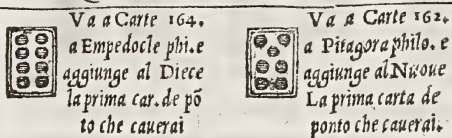 Va a Carte 164.
a Empedocle phi. e
aggiunge al Diece
la prima car. de põ
to che cauerai
Va a Carte 162.
a Pitagora philo. e
aggiunge al Nuoue
La prima carta de
ponto che cauerai.